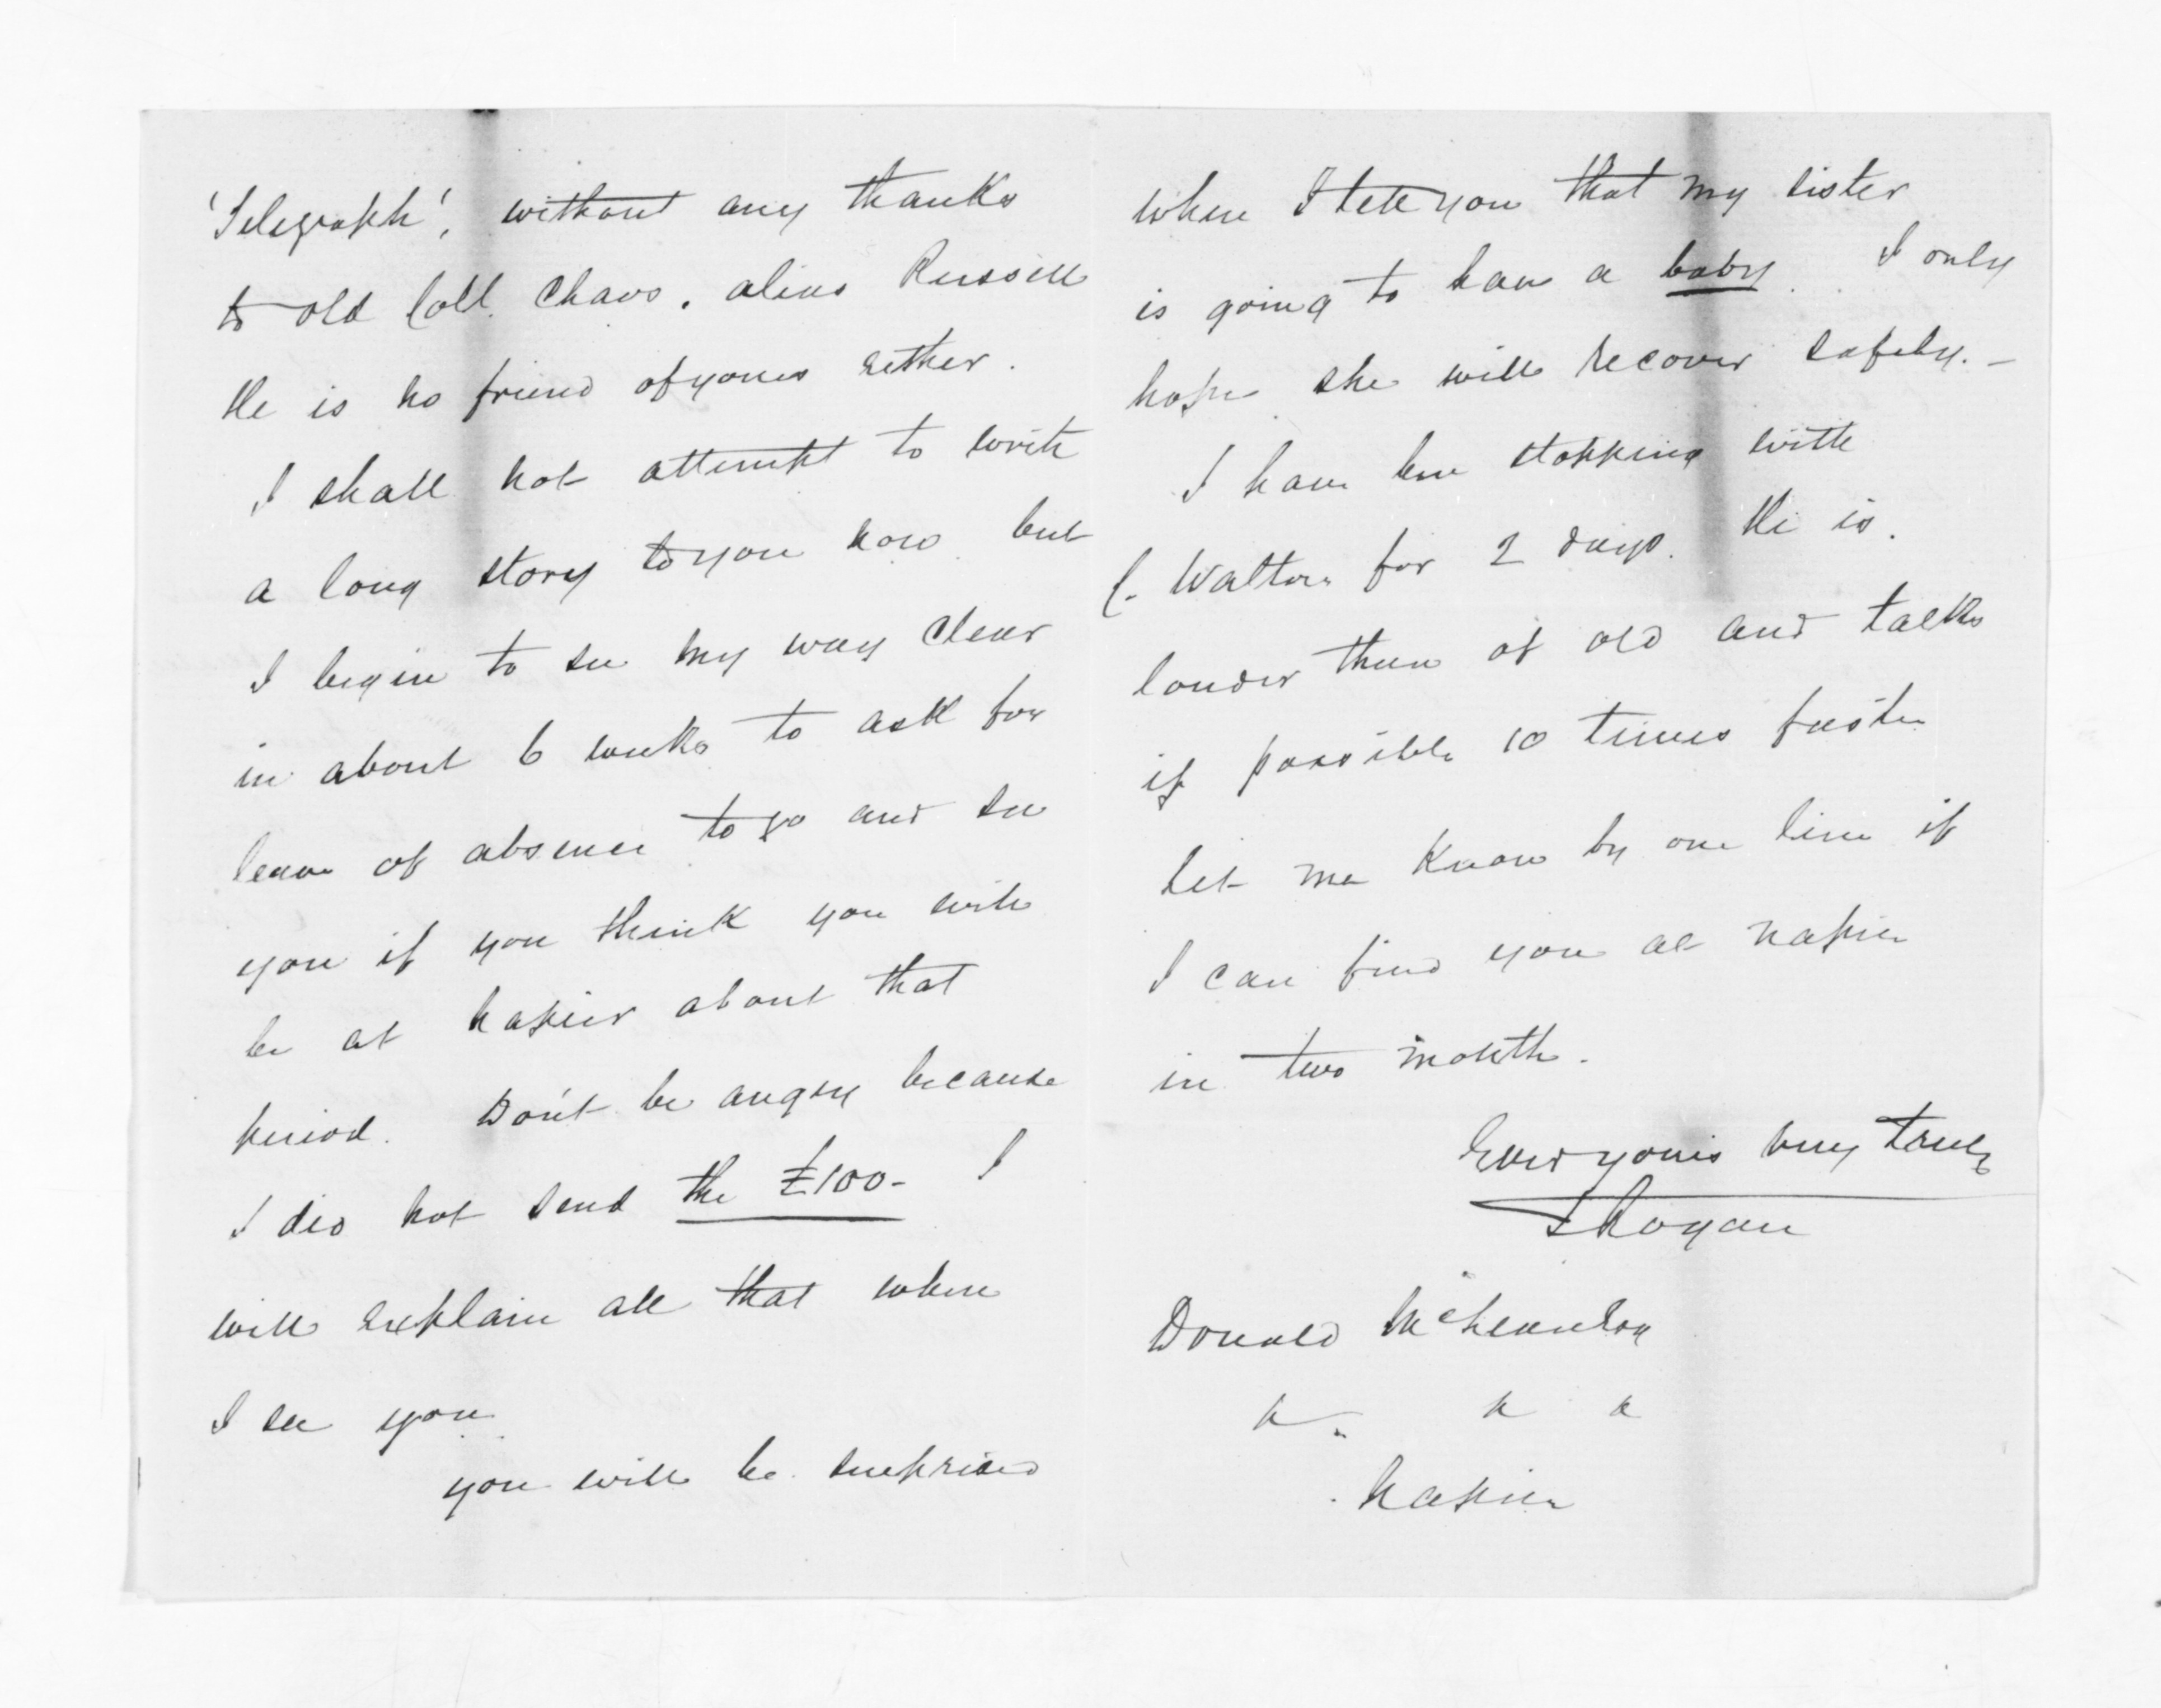 'Telegraph', without any thanks
to old Coll. Chaos. alias Russell
He is no friend of yours either.
I shall not attempt to write
a long story to you now but
I begin to see my way clear
in about 6 weeks to ask for
leave of absence to go and see
you if you think you will
be at Napier about that
period. Don't be angry because
I did not send the £100- I
will explain all that when
I see you
you will be surprised
when I tell you that my sister
is going to have a baby. I only
hope she will recover safely. -
I have been stopping with
C. Walton for 2 days. He is
louder than of old and talks
if possible 10 times faster
Let me know by one line if
I can find you at Napier
in two month.
Ever yours very truly
Donald McLean Esq
Napier